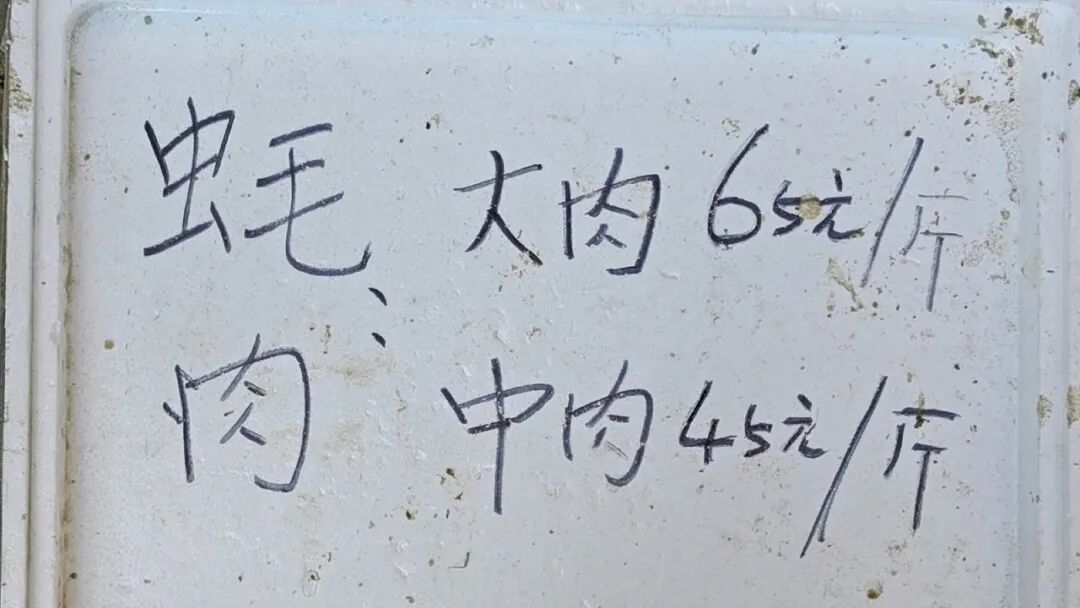 蚝 大肉 65元/斤
肉: 中肉 45元/斤